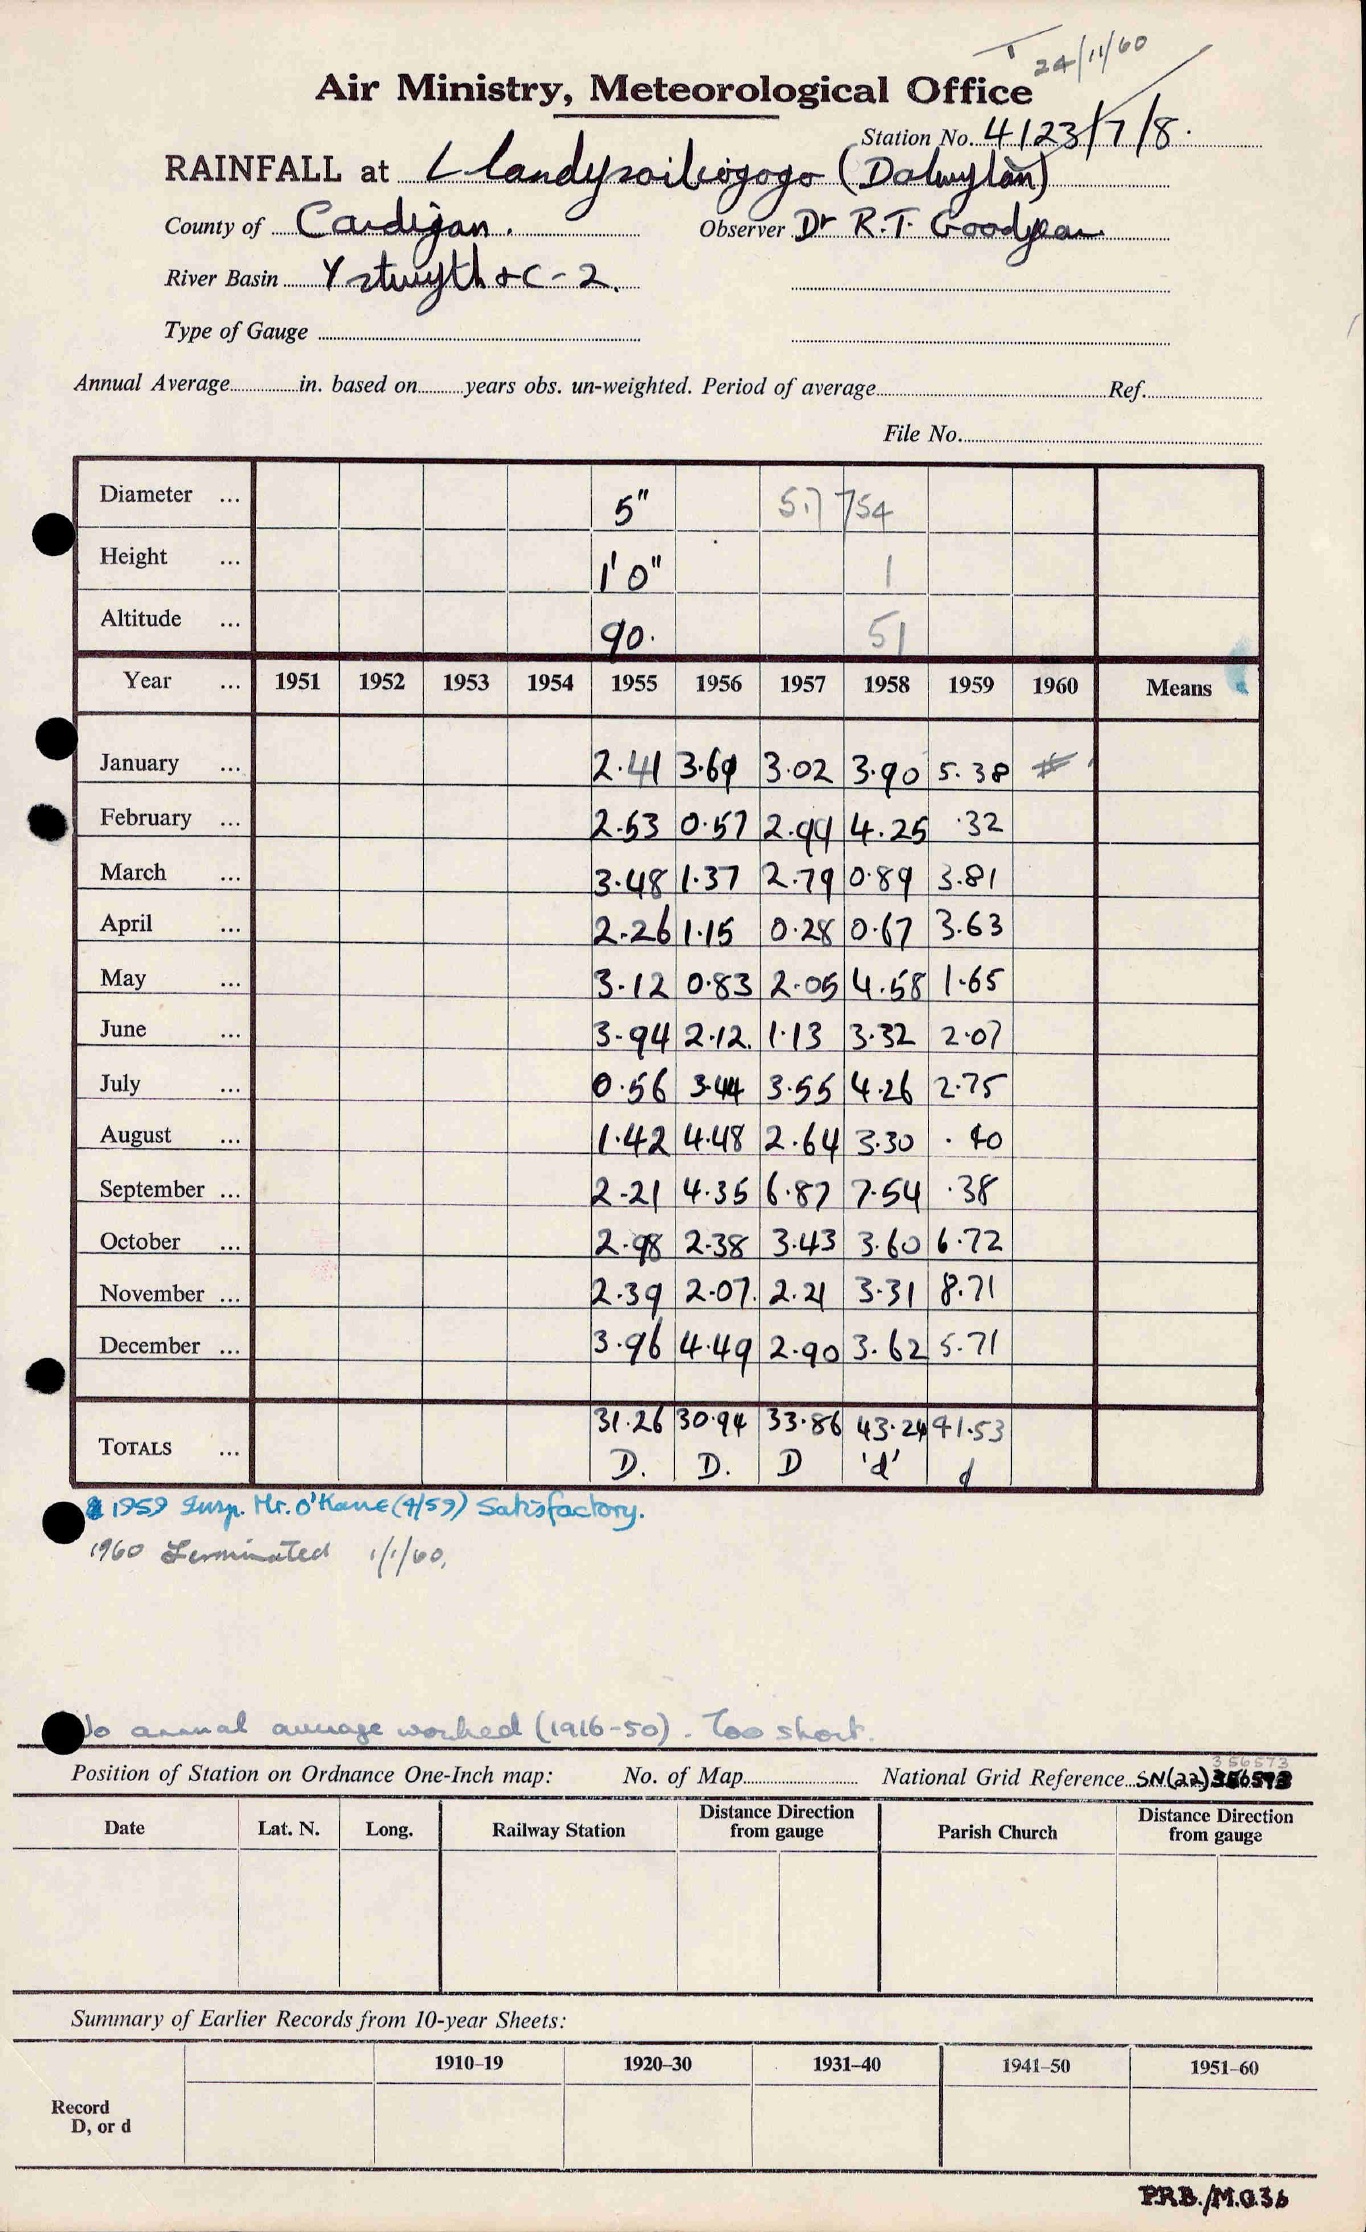 24/11/60
Air Ministry, Meteorological Office
Station No. 4123/7/8.
RAINFALL at Llandysoiliogogo (Dolwylan)
County of Cardigan. Observer Dr R.T. Goodyear
River Basin Ystwyth + C - 2.
Type of Gauge
Annual Average in. based on years obs. un-weighted. Period of average Ref.
File No.
Diameter ... 5" 5.1 754
Height ... 1' 0" 1
Altitude ... 90. 51
Year ... 1951 1952 1953 1954 1955 1956 1957 1958 1959 1960 Means
January ... 2.41 3.69 3.02 3.90 5.38
February ... 2.53 0.57 2.99 4.25 .32
March ... 3.48 1.37 2.79 0.89 3.81
April ... 2.26 1.15 0.28 0.67 3.63
May ... 3.12 0.83 2.05 4.58 1.65
June ... 3.94 2.12. 1.13 3.32 2.07
July ... 0.56 3.44 3.55 4.26 2.75
August ... 1.42 4.48 2.64 3.30 .40
September ... 2.21 4.35 6.87 7.54 .38
October ... 2.98 2.38 3.43 3.60 6.72
November ... 2.39 2.07. 2.21 3.31 8.71
December ... 3.96 4.49 2.90 3.62 5.71
TOTALS ... 31.26 30.94 33.86 43.24 41.53
D. D. D 'd' d
1959 Insp. Mr. O'Kane (4/59) Satisfactory.
1960 Terminated 1/1/60.
No annual average worked (1916-50). Too short.
356573
Position of Station on Ordnance One-Inch map: No. of Map National Grid Reference SN(22)356573
Date Lat. N. Long. Railway Station Distance Direction from gauge Parish Church Distance Direction from gauge
Summary of Earlier Records from 10-year Sheets:
1910–19 1920–30 1931–40 1941–50 1951–60
Record
D, or d
P.R.B./M.O.36